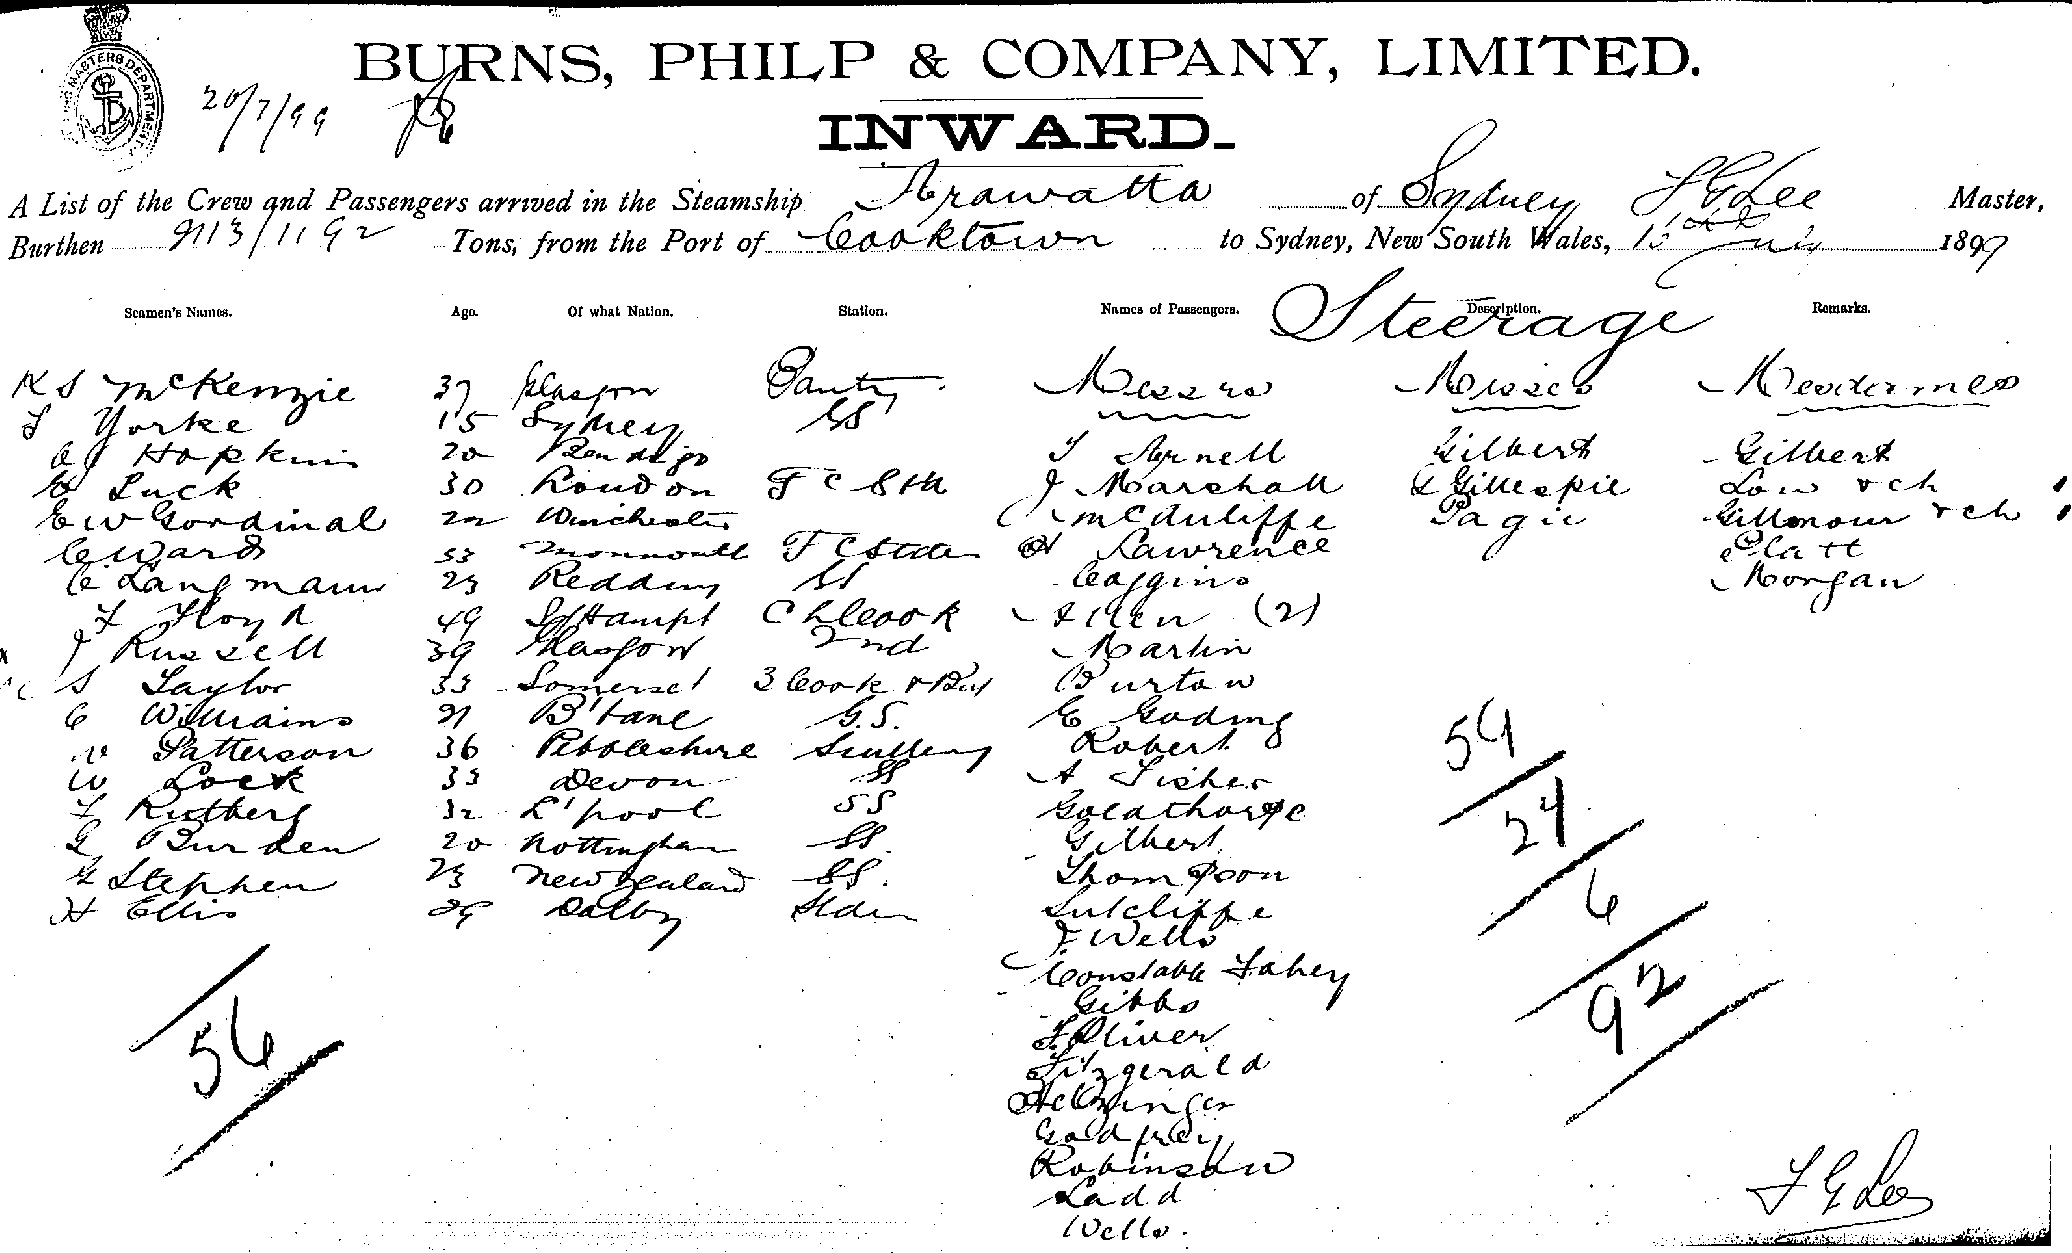 MASTERS DEPARTMENT
20/7/99
BURNS, PHILP & COMPANY, LIMITED.
INWARD.
A List of the Crew and Passengers arrived in the Steamship Arawatta of Sydney F G Lee Master,
Burthen Tons, from the Port of Cooktown to Sydney, New South Wales, 1899
Seamen's Names. Age. Of what Nation. Station. Names of Passengers. Description. Remarks.
Steerage
K S McKenzie 37 Glasgow Pantry Messrs Misses Mesdames
F Yorke 15 Sydney GS
A J Hopkins 20 Bendigo T Arnell Gilbert Gilbert
Luck 30 London F C Std J Marshall Gillespie Low & ch 1
E W Gordinal 22 Winchester J McAuliffe Pagie Gillmour & ch 1
C Ward 33 Monmouth F C Stder H Lawrence Platt
C Langmann 23 Redding SS Coggins Morgan
F Floyd 49 S'Hampt Ch Cook Allen (2)
J Russell 39 Glasgow 2nd Martin
S Taylor 33 Somerset 3 Cook & But Burton
C Williams 21 B'bane G.S. E Goding
W Patterson 36 Pebbleshire Scullery Robert
W Lock 33 Devon SS A Fisher
F Rutberg 32 L'pool SS Goldthorpe
G Burden 20 Nottingham SS Gilbert
G Stephen 23 New Zealand SS. Thompson
H Ellis 29 Dalby Stden Sutcliffe
J Wells
Constable Fahey
Gibbs
F. Oliver
Fitzgerald
Godfrey
Robinson
Ladd
Wells.
56
54
24
6
92
F G Lee